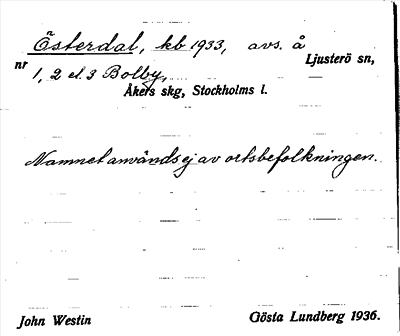 Österdal, kb 1933, avs. å
Ljusterö sn,
nr 1, 2 el. 3 Bolby,
Åkers skg, Stockholms l.
Namnet används ej av ortsbefolkningen.
John Westin
Gösta Lundberg 1936.